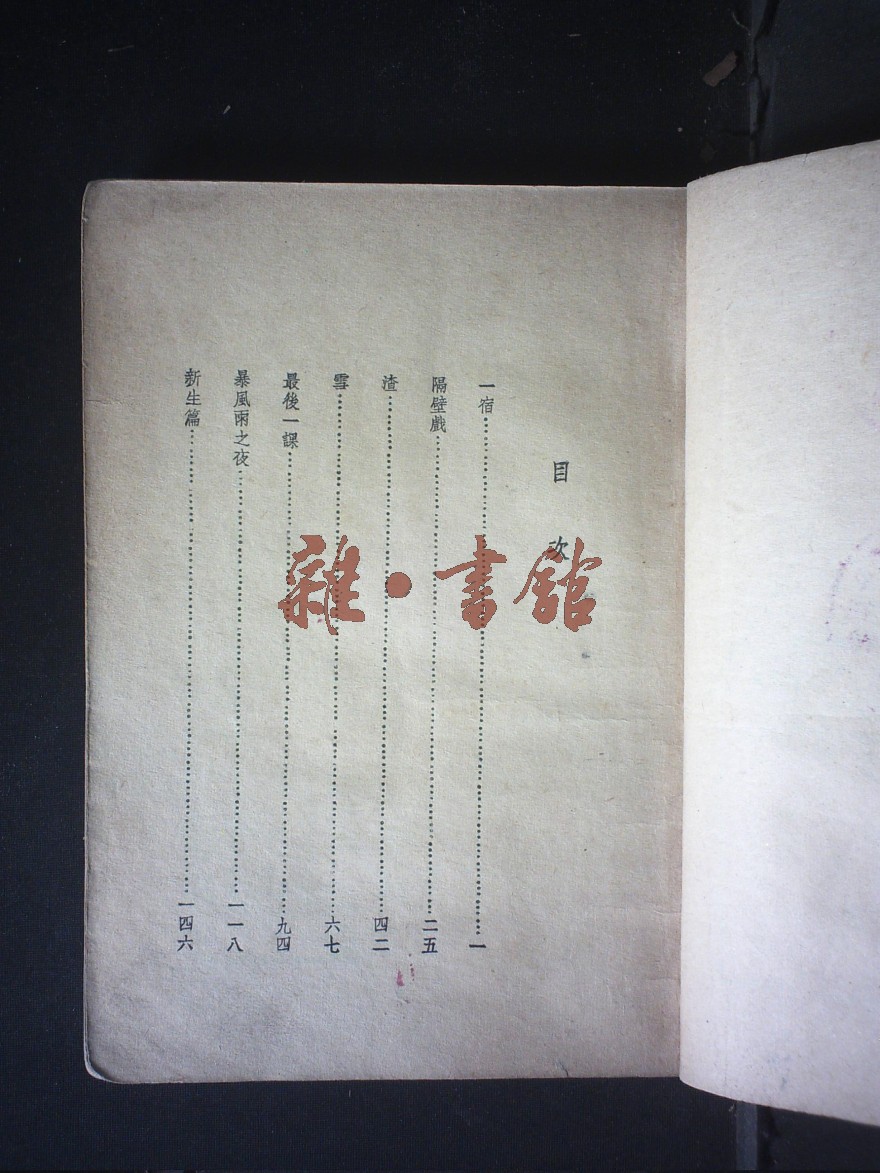 目次
一宿……一
隔壁戲……二五
渣……四二
雪……六七
最後一課……九四
暴風雨之夜……一一八
新生篇……一四六
雜·書館